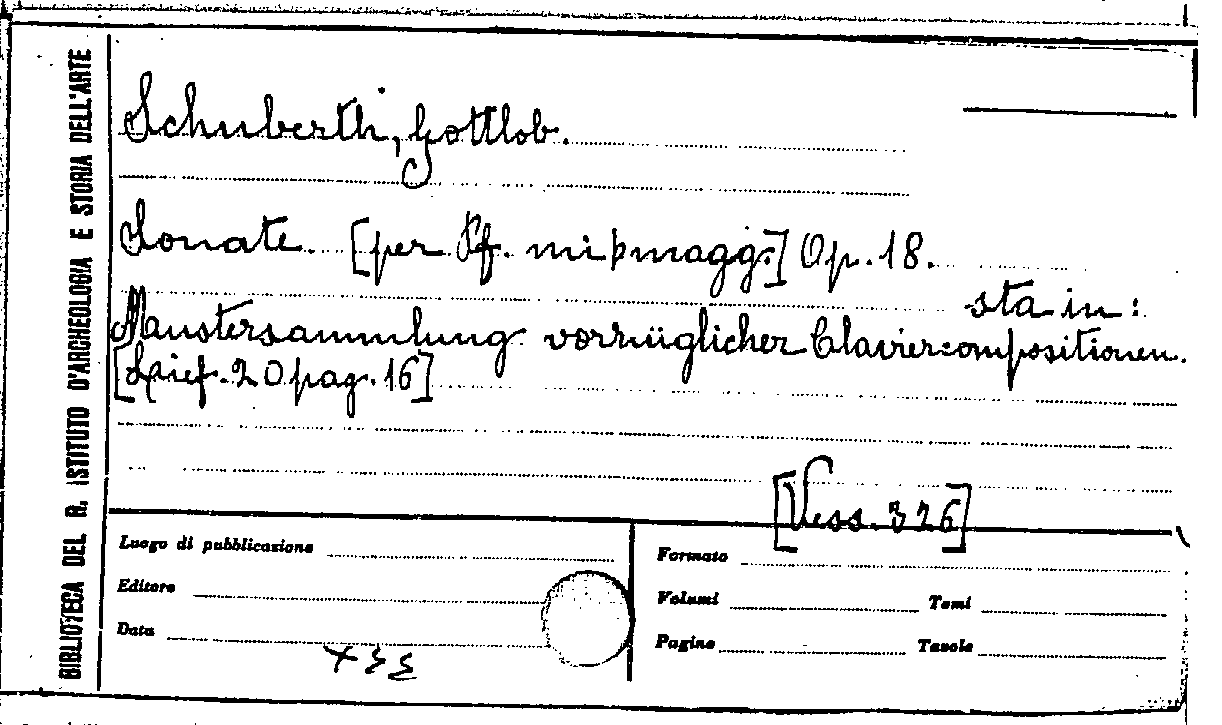 BIBLIOTECA DEL R. ISTITUTO D'ARCHEOLOGIA E STORIA DELL'ARTE
Schuberth, Gottlob.
Sonate. [per Pf. mi♭magg.] Op. 18.
sta in:
Maustersammlung vorzüglicher Claviercompositionen.
[Lief. 20 pag. 16]
[Vess. 326]
Luogo di pubblicazione
Editore
Data
Formato
Volumi Tomi
Pagine Tavole